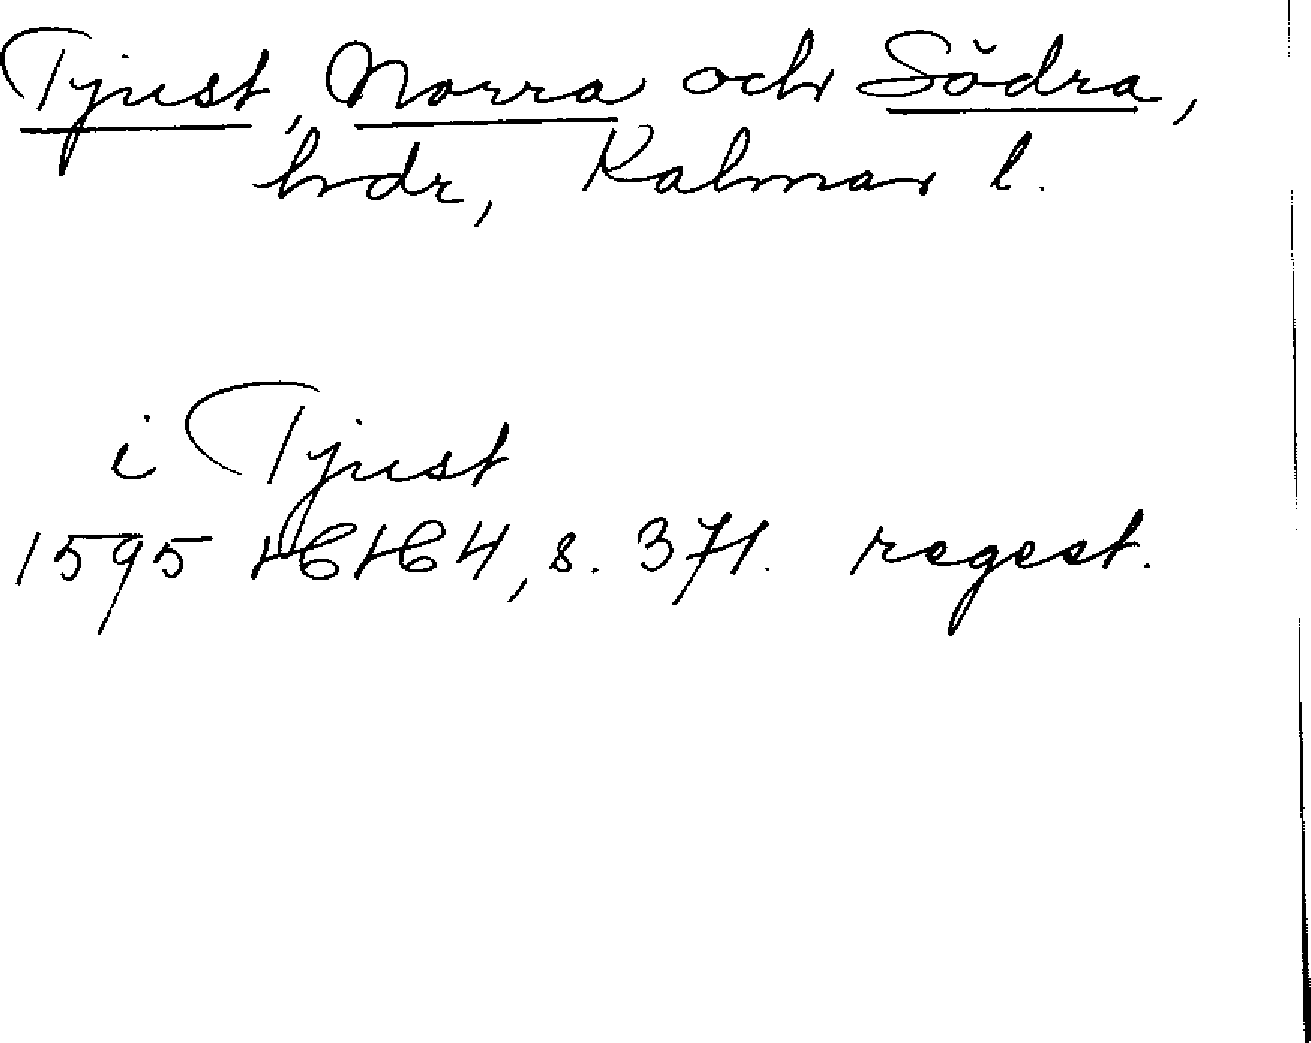 Tjust, Norra och Södra,
hdr, Kalmar l.
i Tjust
1595 HCHC4, s. 371. regest.